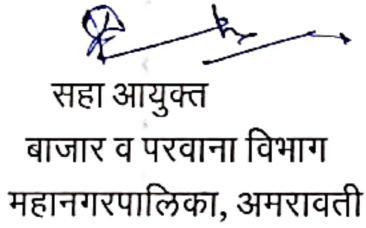 सहा आयुक्त
बाजार व परवाना विभाग
महानगरपालिका, अमरावती